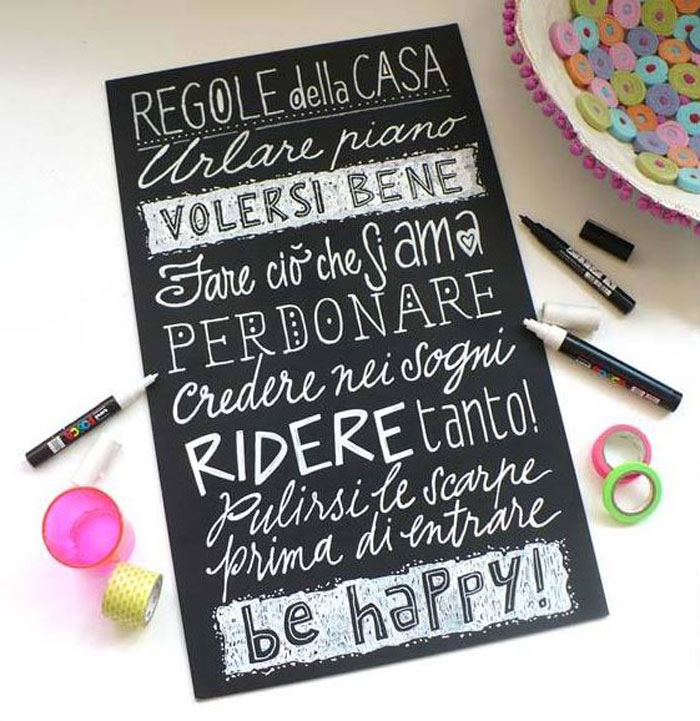 REGOLE della CASA
Urlare piano
VOLERSI BENE
Fare ciò che si ama
PERDONARE
credere nei sogni
RIDERE tanto!
Pulirsi le scarpe
prima di entrare
be happy!
POSCA